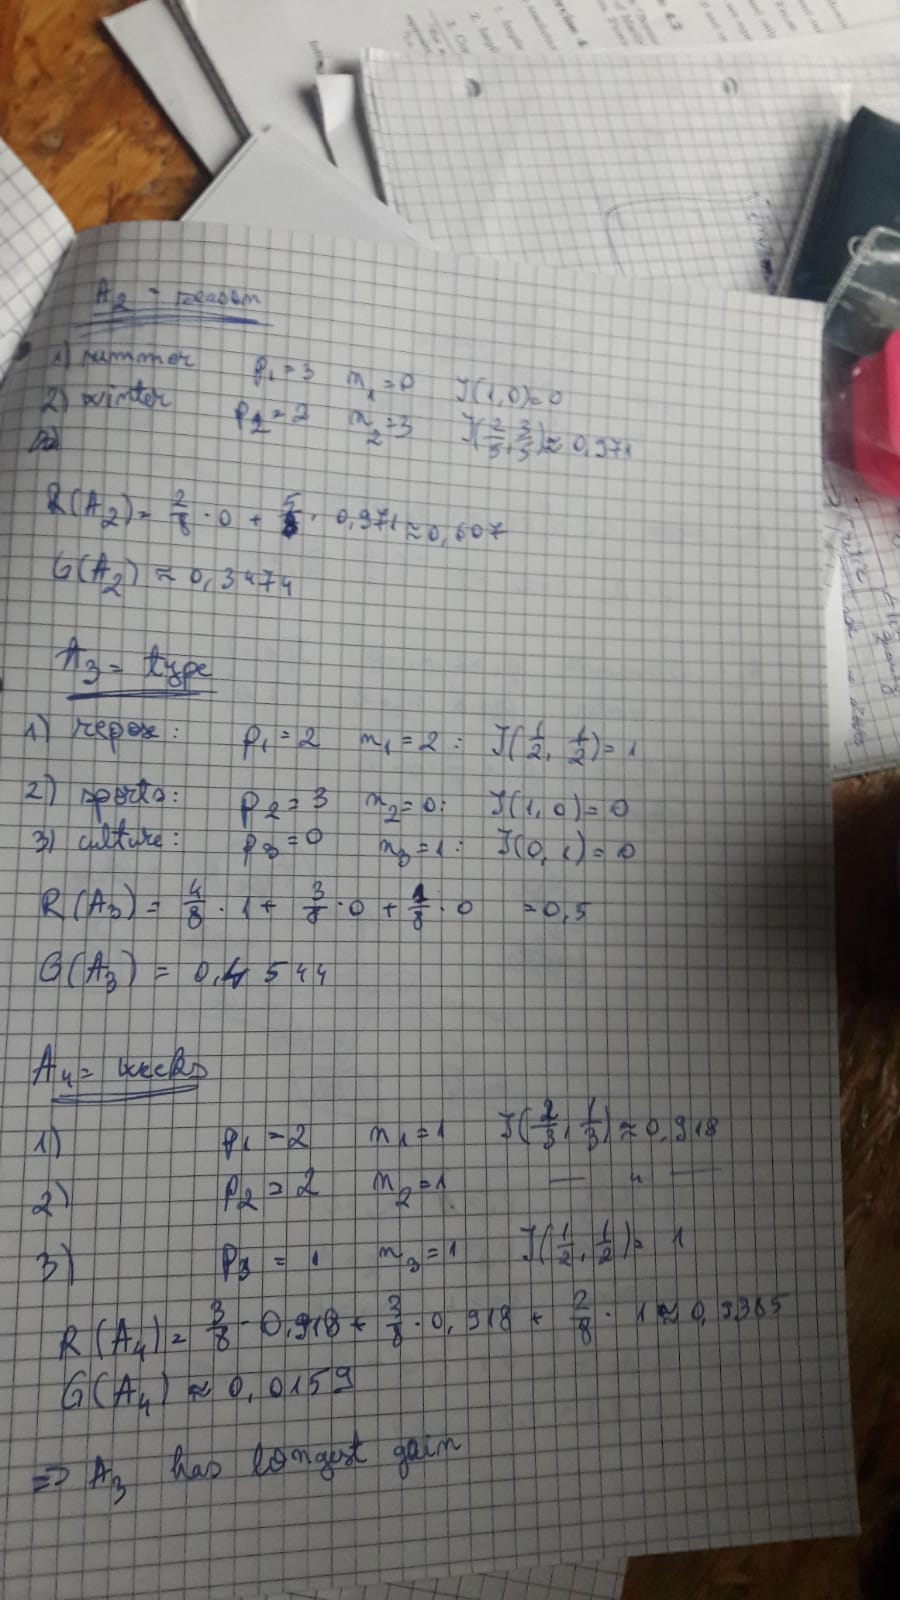 A₂ = season
1) summer p₁ = 3 n₁ = 0 I(1,0) = 0
2) winter p₂ = 2 n₂ = 3 I(2/5, 3/5) ≈ 0,971
R(A₂) = 2/8 · 0 + 5/8 · 0,971 ≈ 0,607
G(A₂) ≈ 0,3474
A₃ = type
1) : p₁ = 2 n₁ = 2 : I(1/2, 1/2) = 1
2) sports: p₂ = 3 n₂ = 0: I(1,0) = 0
3) culture: p₃ = 0 n₃ = 1: I(0,1) = 0
R(A₃) = 4/8 · 1 + 3/8 · 0 + 1/8 · 0 = 0,5
G(A₃) = 0,4544
A₄ = weeks
1) p₁ = 2 n₁ = 1 I(2/3, 1/3) ≈ 0,918
2) p₂ = 2 n₂ = 1 — " —
3) p₃ = 1 n₃ = 1 I(1/2, 1/2) = 1
R(A₄) = 3/8 · 0,918 + 3/8 · 0,918 + 2/8 · 1 ≈ 0,9385
G(A₄) ≈ 0,0159
=> A₃ has longest gain